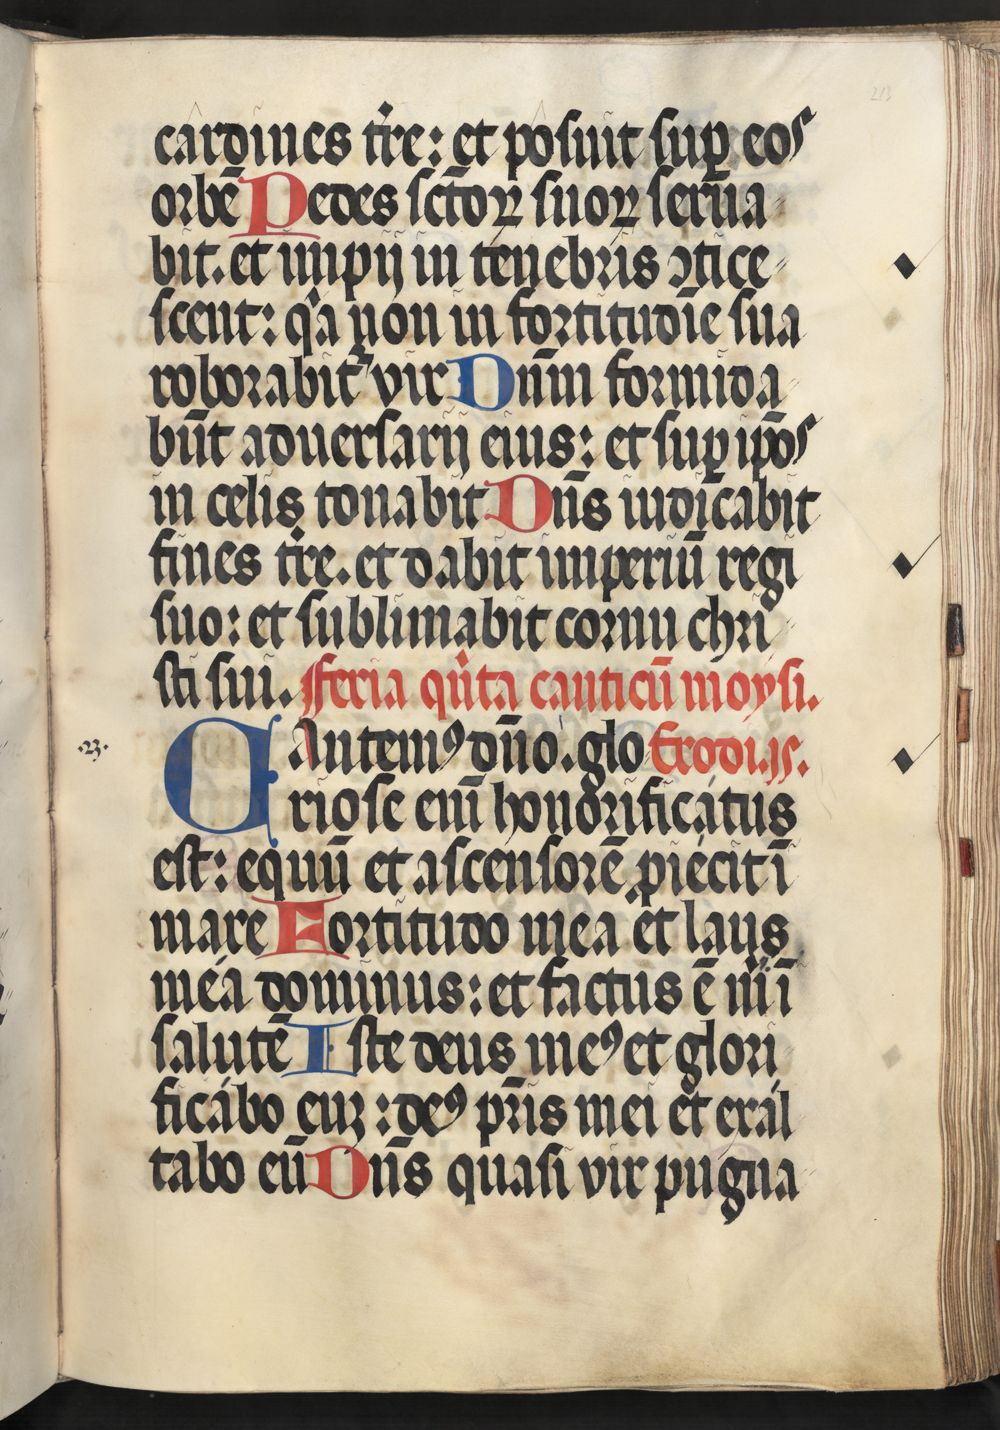 213
cardines tr̄re: et posuit sup̱ eos
orbē Pedes sc̄toꝝ suoꝝ serua
bit. et impij in tenebris ↄtice
scent: q̇a non in fortitudīe sua
roborabit᷑ vir Dn̄m formida
būt aduersarij eius: et sup̱ ip̄os
in celis tonabit Dn̄s iudicabit
fines tr̄re. et dabit imperiū regi
suo: et sublimabit cornu chri
sti sui. Feria qu̇ta canticū moysi.
CAntemꝰ dn̄o. glo Exodi. 15.
·23·
riose eni᷑ honorificatus
est: equū et ascensorē ꝓiecit ī
mare Fortitudo mea et laus
mea dominus: et factus ē m̄i ī
salutē Iste deus meꝰ et glori
ficabo euꝫ: deꝰ pr̄is mei et exal
tabo eū Dn̄s quasi vir pugna